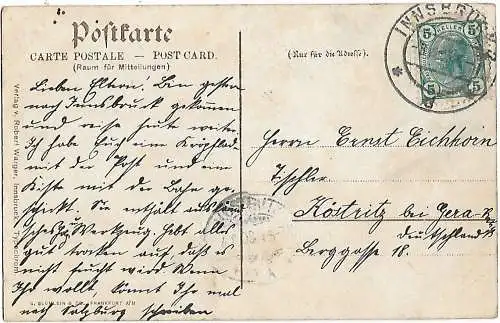 Postkarte
CARTE POSTALE — POST CARD.
(Raum für Mitteilungen)
(Nur für die Adresse.)
INNSBRUCK
5 HELLER 5
5 5
Lieben Eltern! Bin gestern
nach Innsbruck gekommen
und reise heute weiter.
Ich habe Euch eine
mit der Post und eine
Kiste mit der Bahn ge-
schickt. Sie enthält
Werkzeug. Hebt alles
gut trocken auf, daß es
nicht feucht wird. Wenn
Ihr wollt, könnt Ihr mal
nach Salzburg schreiben
Herrn Ernst Eichhorn
Tischler
Köstritz bei Gera
Deutschland
Berggasse 18.
Verlag v. Robert Warger, Innsbruck, Tirol.
G. BLÜMLEIN & CO., FRANKFURT A/M